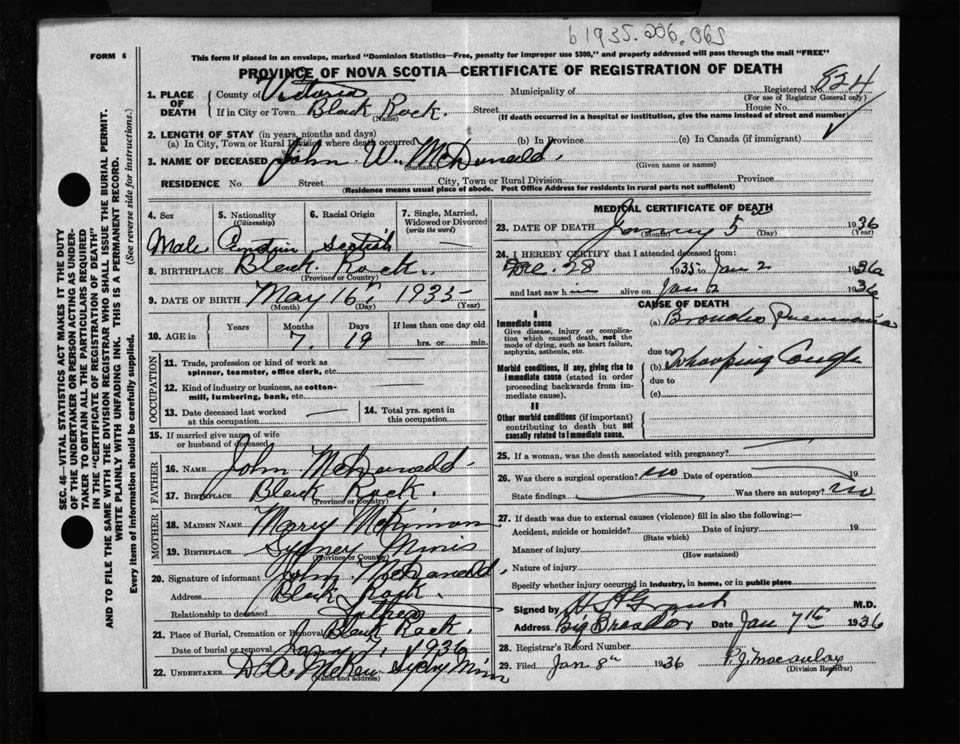 b 1935.206.065
This form if placed in an envelope, marked "Dominion Statistics—Free, penalty for improper use $300," and properly addressed will pass through the mail "FREE"
FORM 6
PROVINCE OF NOVA SCOTIA—CERTIFICATE OF REGISTRATION OF DEATH
SEC. 46—VITAL STATISTICS ACT MAKES IT THE DUTY
OF THE UNDERTAKER OR PERSON ACTING AS UNDER-
TAKER TO OBTAIN ALL THE PARTICULARS REQUIRED
IN THE "CERTIFICATE OF REGISTRATION OF DEATH"
AND TO FILE THE SAME WITH THE DIVISION REGISTRAR WHO SHALL ISSUE THE BURIAL PERMIT.
WRITE PLAINLY WITH UNFADING INK. THIS IS A PERMANENT RECORD.
Every item of information should be carefully supplied. (See reverse side for instructions.)
1. PLACE OF DEATH
County of Victoria Municipality of Registered No. 824
(For use of Registrar General only)
If in City or Town Black Rock. Street House No.
(Name) (If death occurred in a hospital or institution, give the name instead of street and number)
2. LENGTH OF STAY (in years, months and days)
(a) In City, Town or Rural Division where death occurred (b) In Province (c) In Canada (if immigrant)
3. NAME OF DECEASED John W. McDonald.
(Surname) (Given name or names)
RESIDENCE No. Street City, Town or Rural Division Province
(Residence means usual place of abode. Post Office Address for residents in rural parts not sufficient)
4. Sex 5. Nationality (Citizenship) 6. Racial Origin 7. Single, Married, Widowed or Divorced (write the word)
Male Scotish —
8. BIRTHPLACE Black Rock.
(Province or Country)
9. DATE OF BIRTH May 16th 1935
(Month) (Day) (Year)
10. AGE in Years Months Days If less than one day old
7. 19 hrs. or min.
OCCUPATION
11. Trade, profession or kind of work as
spinner, teamster, office clerk, etc. —
12. Kind of industry or business, as cotton-
mill, lumbering, bank, etc. —
13. Date deceased last worked
at this occupation —
14. Total yrs. spent in
this occupation
15. If married give name of wife
or husband of deceased
FATHER
16. NAME John McDonald
17. BIRTHPLACE Black Rock.
(Province or Country)
MOTHER
18. MAIDEN NAME Mary McKinnon
19. BIRTHPLACE Sydney Mines
(Province or Country)
20. Signature of informant John McDonald.
Address Black Rock.
Relationship to deceased Father
21. Place of Burial, Cremation or Removal Black Rock.
Date of burial or removal Jany 7, 1936
22. UNDERTAKER D. A. Sydney Mines
(Name and address)
MEDICAL CERTIFICATE OF DEATH
23. DATE OF DEATH January 5th 1936
(Month) (Day) (Year)
24. I HEREBY CERTIFY that I attended deceased from:
Dec. 28 1935 to Jan 2 1936
and last saw h im alive on Jan 2 1936
CAUSE OF DEATH
I
Immediate cause (a) Broncho Pneumonia
Give disease, injury or complica-
tion which caused death, not the
mode of dying, such as heart failure,
asphyxia, asthenia, etc.
due to
Morbid conditions, if any, giving rise to
immediate cause (stated in order
proceeding backwards from im-
mediate cause).
(b) Whooping Cough
due to
(c)
II
Other morbid conditions (if important)
contributing to death but not
causally related to immediate cause.
25. If a woman, was the death associated with pregnancy? —
26. Was there a surgical operation? no Date of operation 19
State findings — Was there an autopsy? no
27. If death was due to external causes (violence) fill in also the following:—
Accident, suicide or homicide? Date of injury 19
(State which)
Manner of injury
(How sustained)
Nature of injury
Specify whether injury occurred in industry, in home, or in public place
Signed by M.D.
Address Big Bras d'Or Date Jan 7th 1936
28. Registrar's Record Number
29. Filed Jan 8th 1936 P. J. Macaulay
(Division Registrar)